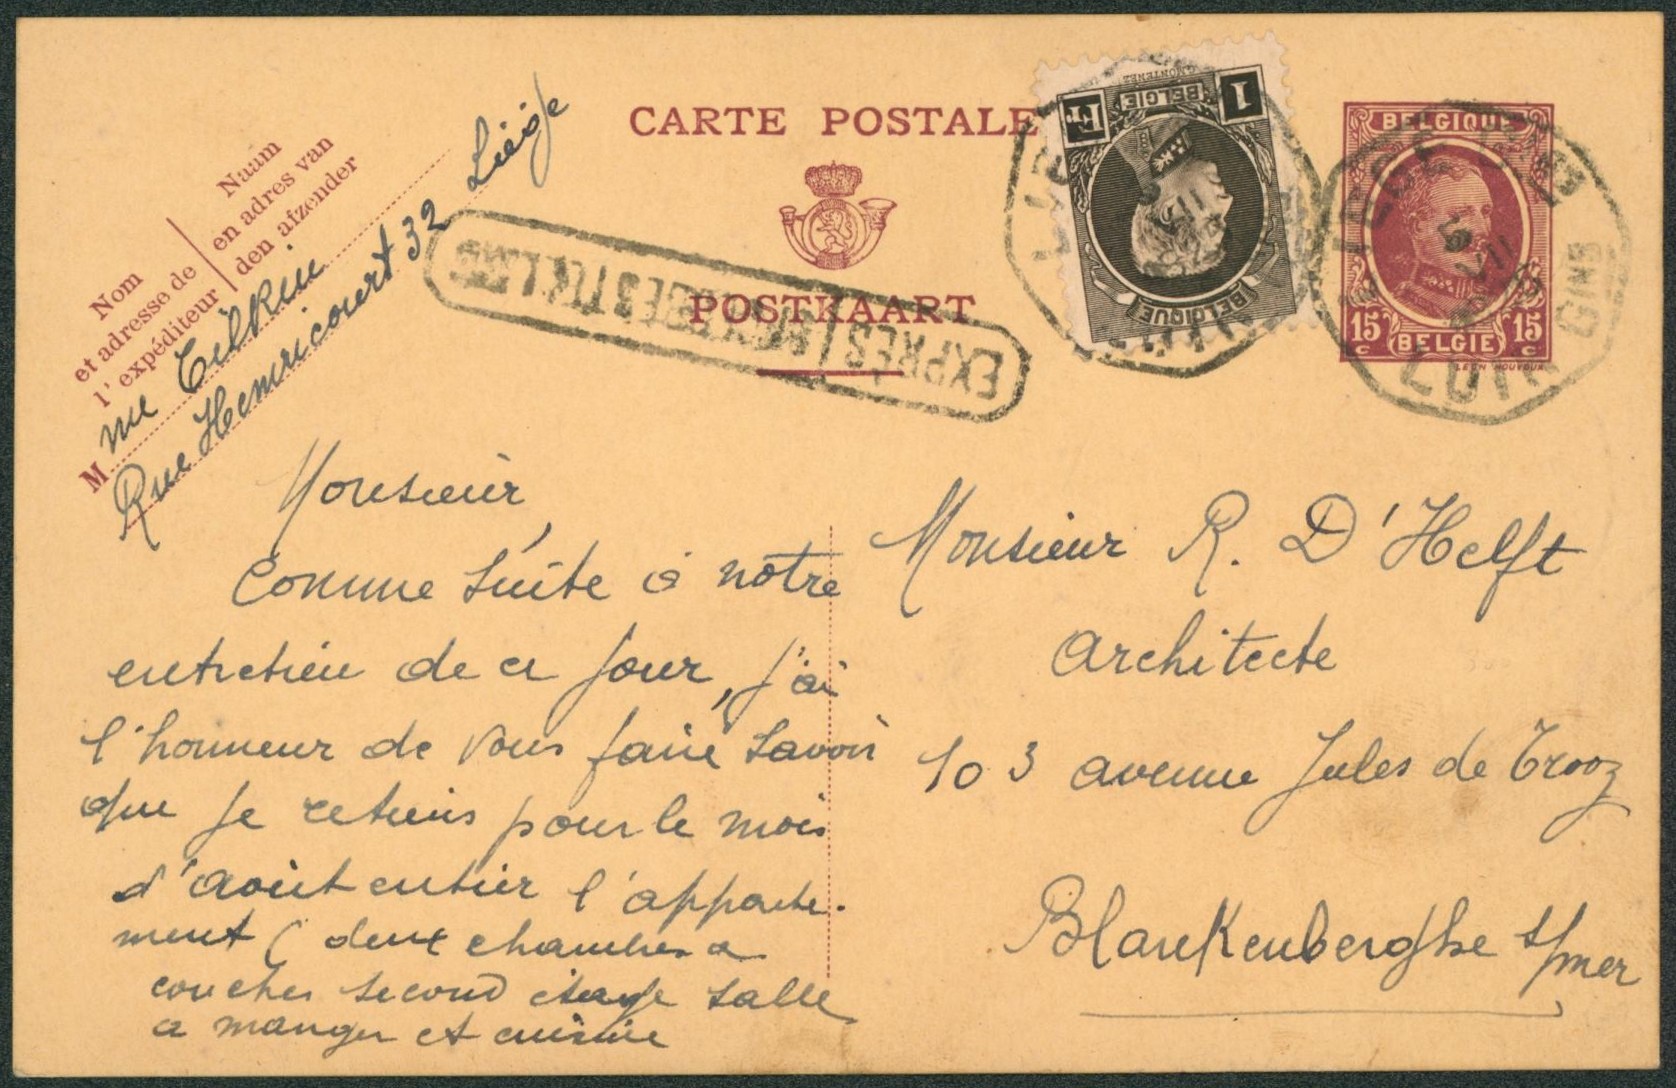 CARTE POSTALE
POSTKAART
Nom
et adresse de
l'expéditeur
Naam
en adres van
den afzender
M
me Tilkin
Rue Hemricourt 32 Liége
EXPRÈS
1 Fr
BELGIE
BELGIQUE
BELGIQUE
15 c 15 c
BELGIE
Monsieur,
Comme suite à notre
entretien de ce jour, j'ai
l'honneur de vous faire savoir
que je retiens pour le mois
d'août entier l'apparte-
ment (deux chambres a
coucher second étage salle
a manger et cuisine
Monsieur R. D'Helft
Architecte
103 avenue Jules de Trooz
Blankenberghe s/mer